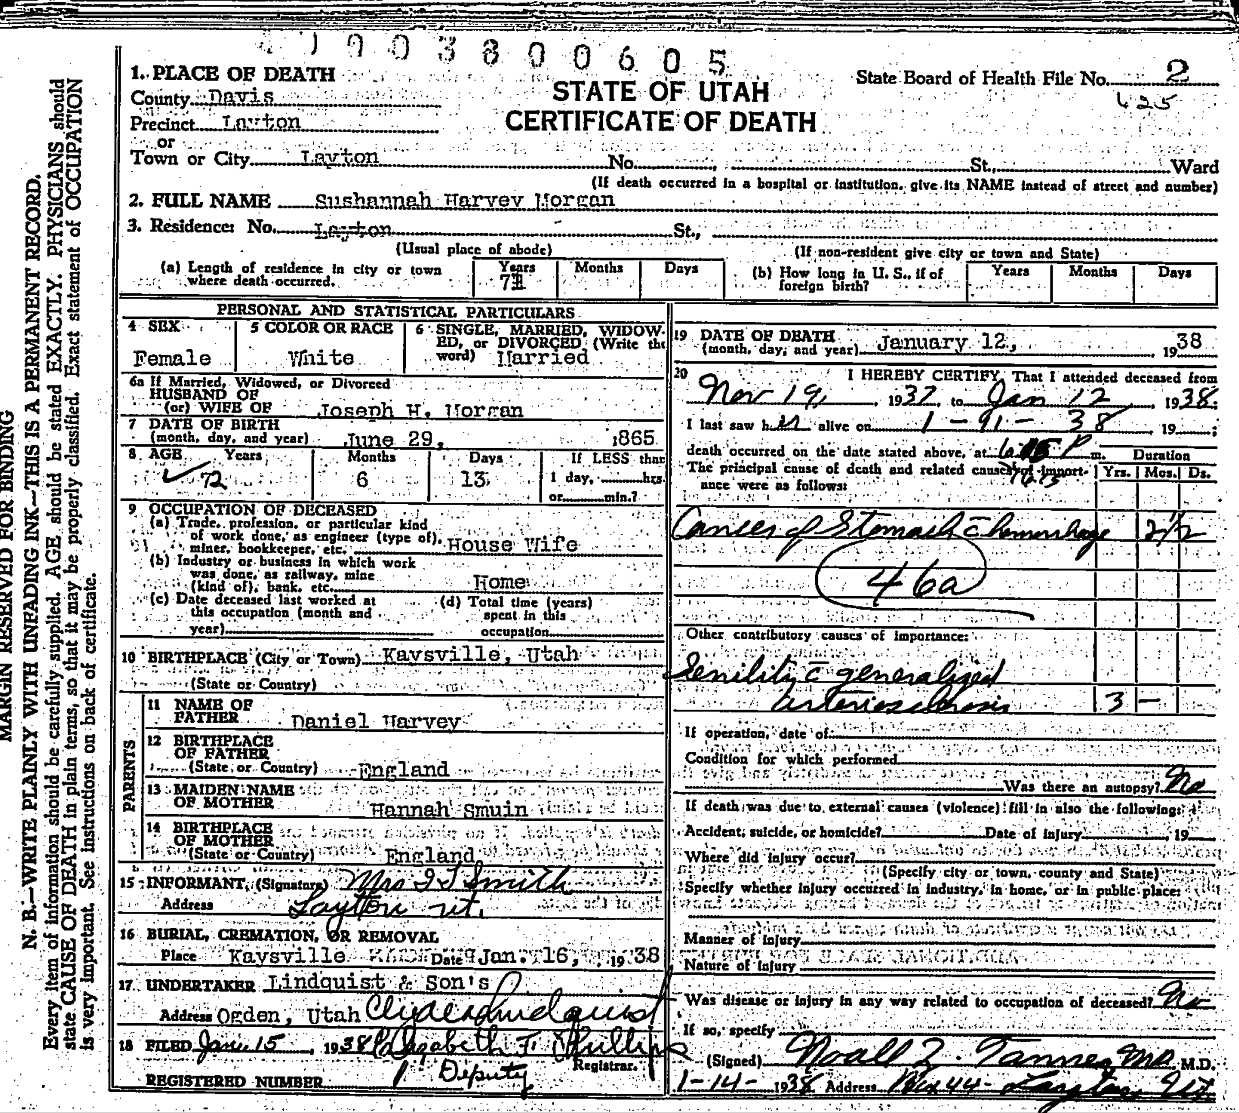 1003800605
1. PLACE OF DEATH
County Davis
Precinct Layton
or
Town or City Layton No. , St., Ward
STATE OF UTAH
CERTIFICATE OF DEATH
State Board of Health File No. 2
625
(If death occurred in a hospital or institution, give its NAME instead of street and number)
2. FULL NAME Sushannah Harvey Morgan
3. Residence: No. Layton St.,
(Usual place of abode) (If non-resident give city or town and State)
(a) Length of residence in city or town where death occurred. Years 71 Months Days
(b) How long in U. S., if of foreign birth? Years Months Days
PERSONAL AND STATISTICAL PARTICULARS
4 SEX Female
5 COLOR OR RACE White
6 SINGLE, MARRIED, WIDOWED, or DIVORCED (Write the word) Married
6a If Married, Widowed, or Divorced
HUSBAND OF
(or) WIFE OF Joseph H. Morgan
7 DATE OF BIRTH
(month, day, and year) June 29, 1865
8 AGE Years 72 Months 6 Days 13 If LESS than
1 day, hrs.
or min.?
9 OCCUPATION OF DECEASED
(a) Trade, profession, or particular kind
of work done, as engineer (type of),
miner, bookkeeper, etc. House Wife
(b) Industry or business in which work
was done, as railway, mine
(kind of), bank, etc. Home
(c) Date deceased last worked at
this occupation (month and
year)
(d) Total time (years)
spent in this
occupation
10 BIRTHPLACE (City or Town) Kaysville, Utah
(State or Country)
PARENTS
11 NAME OF
FATHER Daniel Harvey
12 BIRTHPLACE
OF FATHER
(State or Country) England
13 MAIDEN NAME
OF MOTHER Hannah Smuin
14 BIRTHPLACE
OF MOTHER
(State or Country) England
15 INFORMANT, (Signature) Mrs Smith
Address Layton Ut.
16 BURIAL, CREMATION, OR REMOVAL
Place Kaysville Date Jan. 16, 1938
17 UNDERTAKER Lindquist & Son's
Address Ogden, Utah Clyde Lindquist
18 FILED Jan. 15, 1938 Elizabeth F. Phillips
Registrar.
Deputy
REGISTERED NUMBER 1
19 DATE OF DEATH
(month, day, and year) January 12, 1938
20 I HEREBY CERTIFY, That I attended deceased from
Nov 19, 1937, to Jan 12, 1938.
I last saw h er alive on 1-91-38, 19 ;
death occurred on the date stated above, at P m.
The principal cause of death and related causes of importance were as follows:
Duration
Yrs. Mos. Ds.
Cancer of Stomach c hemorrhage 2 1/2
46a
Other contributory causes of importance:
Senility c generalized
arteriosclerosis 3 -
If operation, date of
Condition for which performed
Was there an autopsy? No
If death was due to external causes (violence) fill in also the following:
Accident, suicide, or homicide? Date of injury 19
Where did injury occur?
(Specify city or town, county and State)
Specify whether injury occurred in industry, in home, or in public place:
Manner of injury
Nature of injury
Was disease or injury in any way related to occupation of deceased? No
If so, specify
(Signed) Noall Z. Tanner MD M.D.
1-14- 1938 Address Box 44 - Layton Ut
MARGIN RESERVED FOR BINDING
N. B.—WRITE PLAINLY WITH UNFADING INK—THIS IS A PERMANENT RECORD.
Every item of information should be carefully supplied. AGE should be stated EXACTLY. PHYSICIANS should
state CAUSE OF DEATH in plain terms, so that it may be properly classified. Exact statement of OCCUPATION
is very important. See instructions on back of certificate.